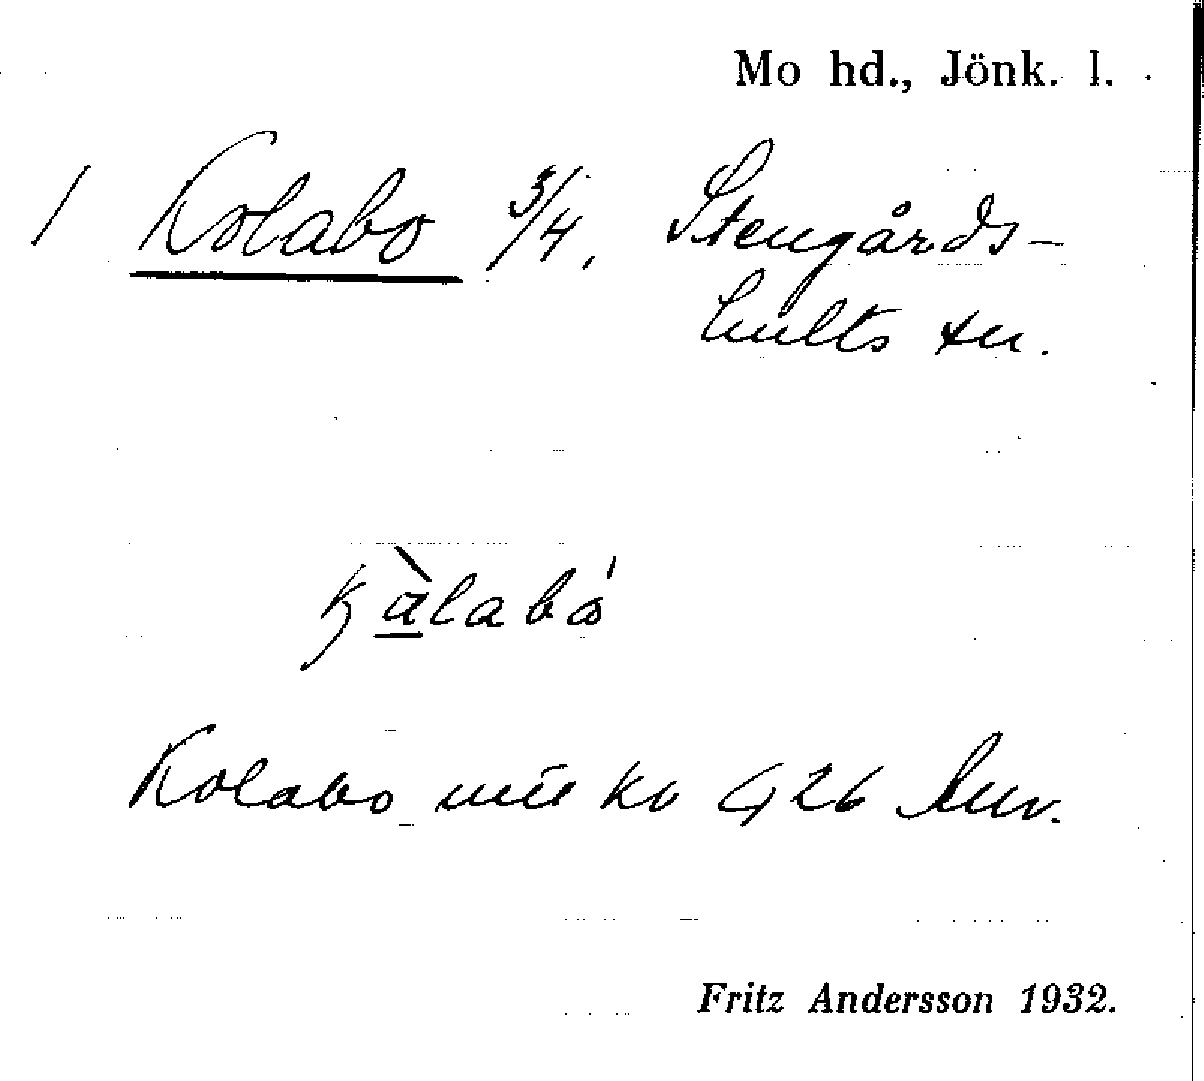 Mo hd., Jönk. l.
1 Kolabo 3/4, Stengårds-
hults sn.
kàlabó
Kolabo 426
Fritz Andersson 1932.